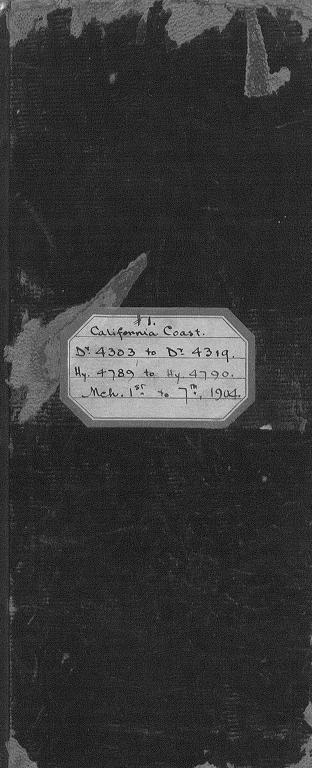 #1.
California Coast.
Dr. 4303 to Dr. 4319.
Hy. 4789 to Hy. 4790.
Mch. 1st. to 7th., 1904.